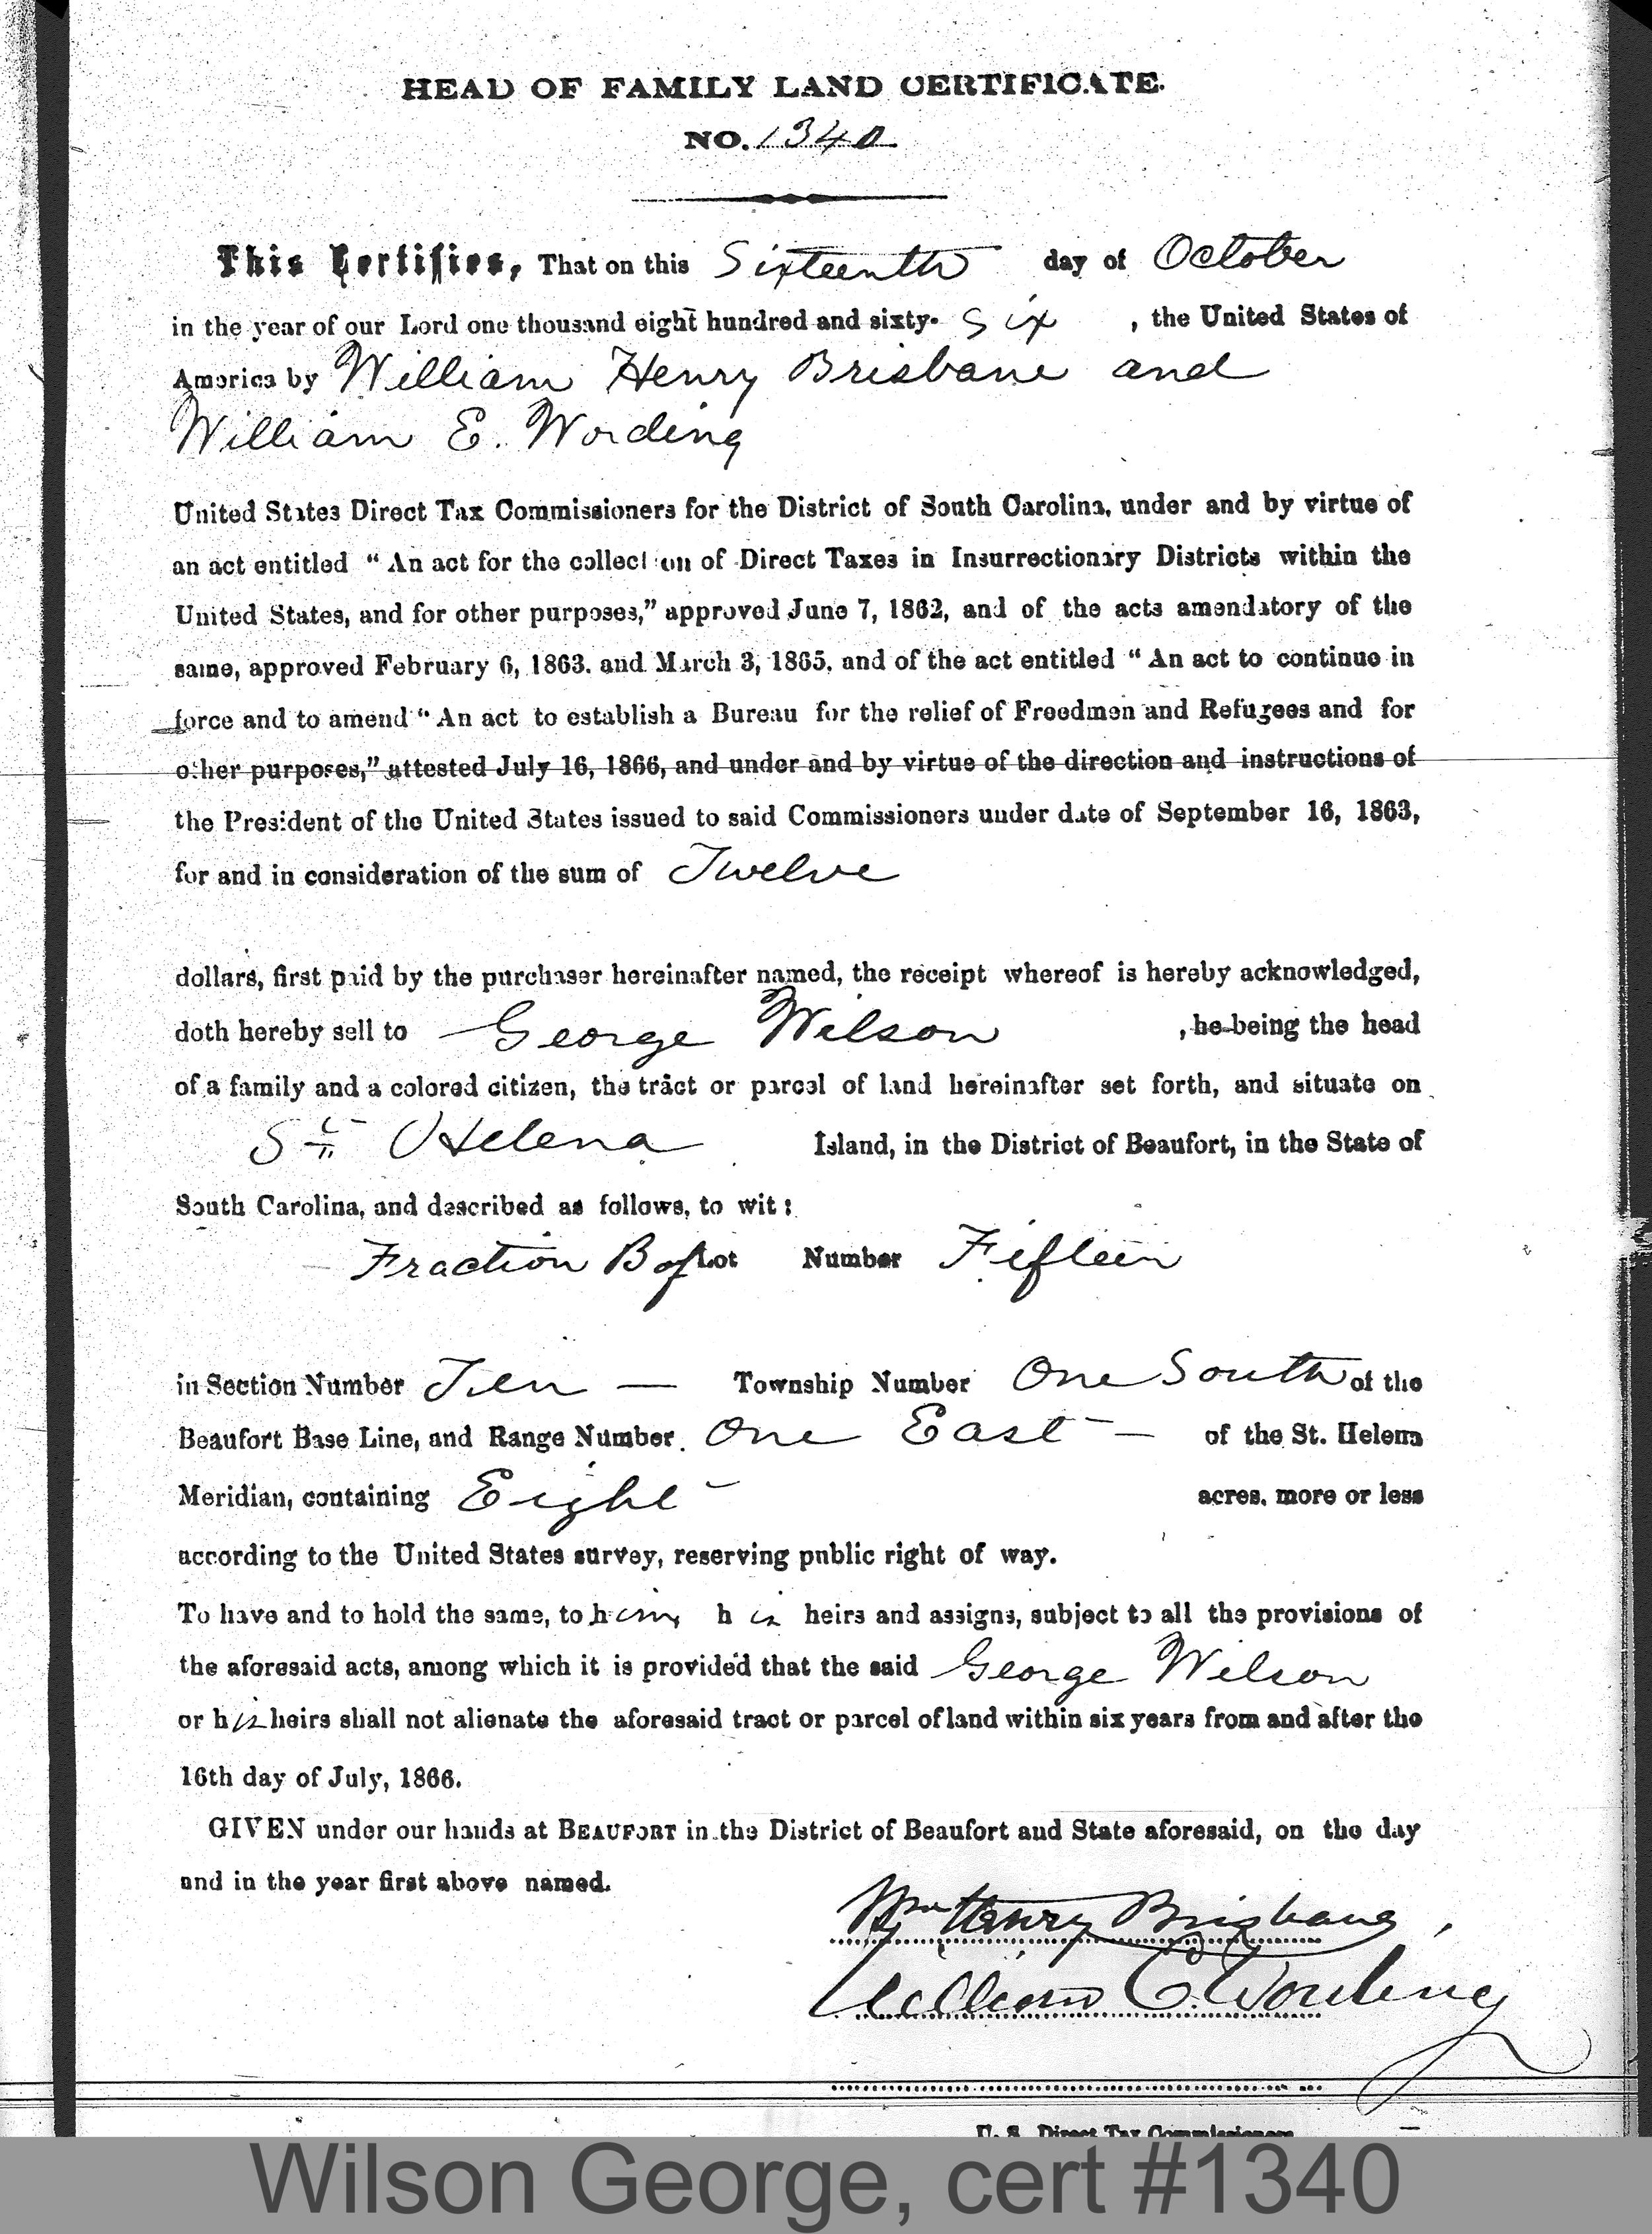 HEAD OF FAMILY LAND CERTIFICATE.
NO. 1340
This Certifies, That on this Sixteenth day of October
in the year of our Lord one thousand eight hundred and sixty- six , the United States of
America by William Henry Brisbane and
William E. Wording
United States Direct Tax Commissioners for the District of South Carolina, under and by virtue of
an act entitled “ An act for the collection of Direct Taxes in Insurrectionary Districts within the
United States, and for other purposes,” approved June 7, 1862, and of the acts amendatory of the
same, approved February 6, 1863. and March 3, 1865, and of the act entitled “ An act to continue in
force and to amend “ An act to establish a Bureau for the relief of Freedmen and Refugees and for
other purposes,” attested July 16, 1866, and under and by virtue of the direction and instructions of
the President of the United States issued to said Commissioners under date of September 16, 1863,
for and in consideration of the sum of Twelve
dollars, first paid by the purchaser hereinafter named, the receipt whereof is hereby acknowledged,
doth hereby sell to George Wilson , he being the head
of a family and a colored citizen, the tract or parcel of land hereinafter set forth, and situate on
St Helena Island, in the District of Beaufort, in the State of
South Carolina, and described as follows, to wit :
Fraction B of Lot Number Fifteen
in Section Number Ten — Township Number One South of the
Beaufort Base Line, and Range Number One East — of the St. Helena
Meridian, containing Eight acres, more or less
according to the United States survey, reserving public right of way.
To have and to hold the same, to him h is heirs and assigns, subject to all the provisions of
the aforesaid acts, among which it is provided that the said George Wilson
or his heirs shall not alienate the aforesaid tract or parcel of land within six years from and after the
16th day of July, 1866.
GIVEN under our hands at BEAUFORT in the District of Beaufort and State aforesaid, on the day
and in the year first above named.
Wm Henry Brisbane,
William E. Wording
U. S. Direct Tax Commissioners
Wilson George, cert #1340